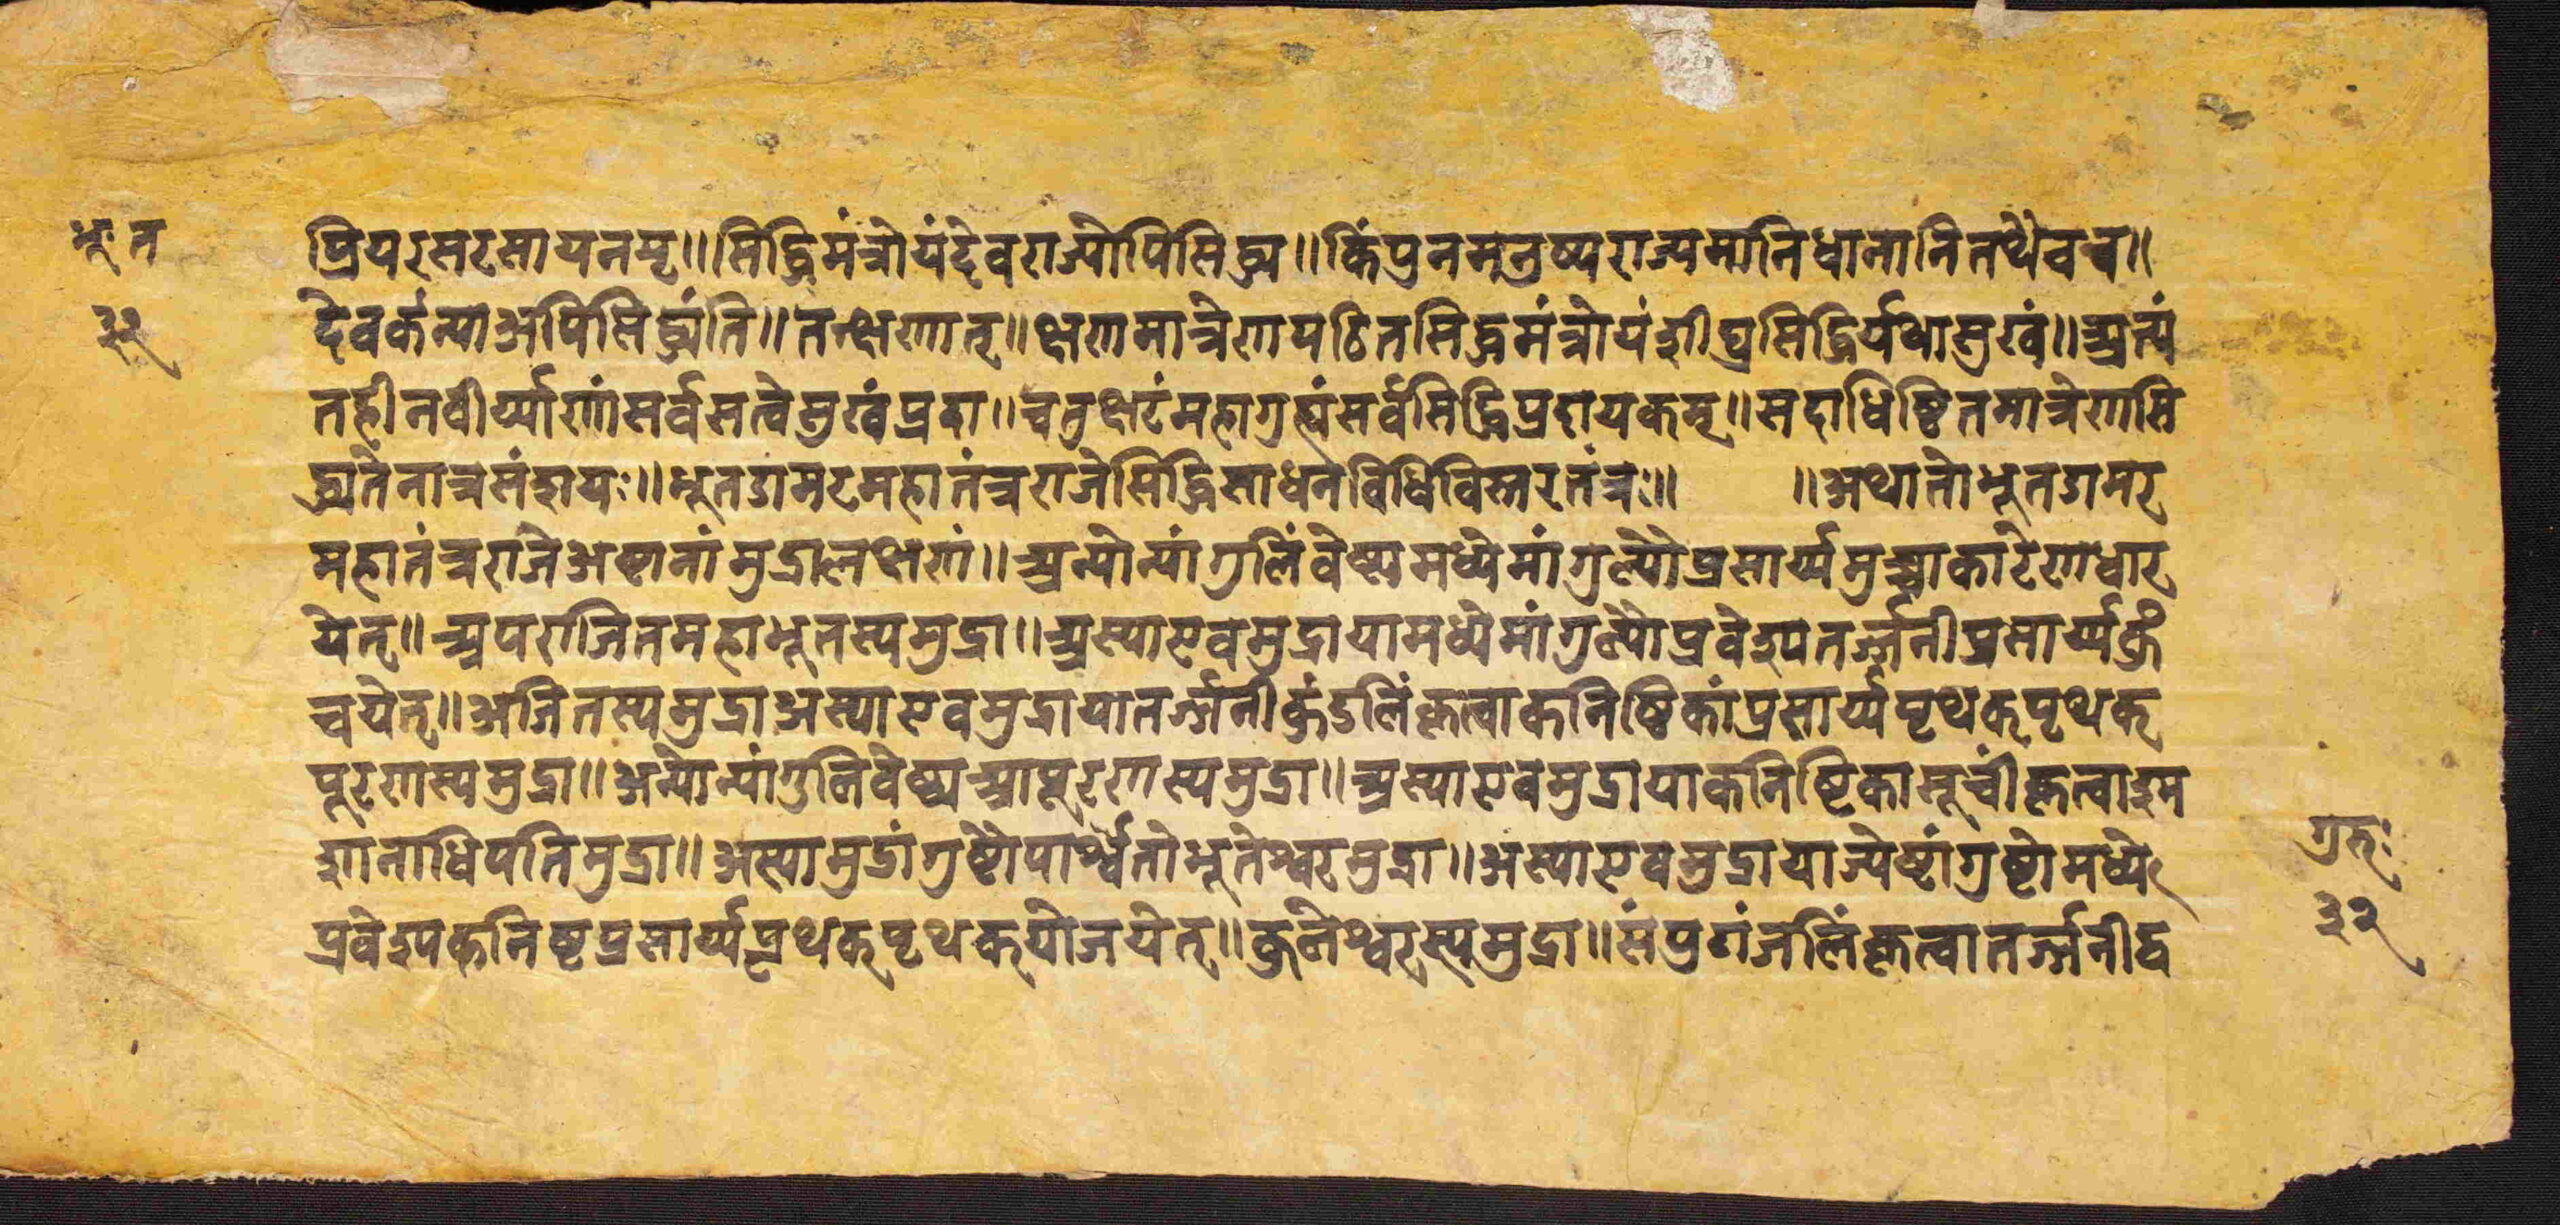 भूःत
३२
प्रियरसरसायनमृ॥सिद्धिमंत्रोयंदेवराज्योपिसिद्ध्य॥किंपुनमनुष्यराज्यमानिधानानितथैवच॥
देवकंन्याअपिसिद्ध्यंति॥तत्क्षणातृ॥क्षणमात्रेणपठितसिद्धमंत्रोयंशीघ्रसिद्धिर्यथासुखं॥अत्यं
तहीनवीर्य्याणांसर्वसत्वेसुखंप्रदा॥चतुक्षरंमहागुह्यंसर्वसिद्धिप्रदायकमृ॥सदाधिष्ठितमात्रेणसि
द्ध्यतेनात्रसंशयः॥भूतडामरमहातंत्रराजेसिद्धिसाधनविधिविस्तरतंत्रः॥ ॥अथातोभूतडामर
महातंत्रराजेअष्टानांमुद्रालक्षणं॥अन्योन्यांगुलिंवेष्ट्यमध्येमांगुल्यौप्रसार्य्यमुच्चाकारेणधार
येतृ॥अपराजितमहाभूतस्यमुद्रा॥अस्याएवमुद्रायामध्येमांगुल्यौप्रवेश्यतर्ज्जनीप्रसार्य्यकुं
चयेतृ॥अजितस्यमुद्राअस्याएवमुद्रायातर्ज्जनीकुंडलिंकृत्वाकनिष्ठिकांप्रसार्य्यपृथकृपृथकृ
पूरणस्यमुद्रा॥अन्योन्यांगुलिवेष्ट्यआपूरणस्यमुद्रा॥अस्याएवमुद्रायाकनिष्टिकासूचीं॑कृत्वाश्म
शानाधिपतिमुद्रा॥अस्यामुद्रांगुष्टौपार्श्वेतोभूतेश्वरमुद्रा॥अस्याएवमुद्रायाज्येष्टांगुष्टोमध्ये
प्रवेश्यकनिष्टप्रसार्य्यपृथकृपृथकृयोजयेतृ॥कुलेश्वरस्यमुद्रा॥संपुगंजलिंकृत्वातर्ज्जनीद्व
गुरुः
३२